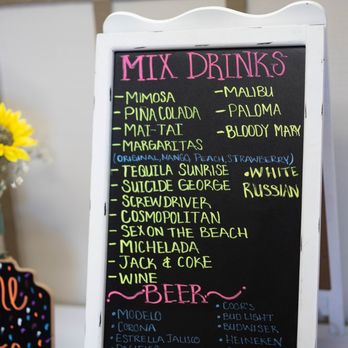 MIX DRINKS
- MIMOSA
- PINA COLADA
- MAI-TAI
- MARGARITAS
(ORIGINAL, MANGO, PEACH, STRAWBERRY)
- TEQUILA SUNRISE
- SUICIDE GEORGE
- SCREWDRIVER
- COSMOPOLITAN
- SEX ON THE BEACH
- MICHELADA
- JACK & COKE
- WINE
- MALIBU
- PALOMA
- BLOODY MARY
• WHITE
RUSSIAN
~BEER~
• MODELO
• CORONA
• ESTRELLA JALISCO
• PACIFICO
• COOR'S
• BUD LIGHT
• BUDWISER
• HEINEKEN